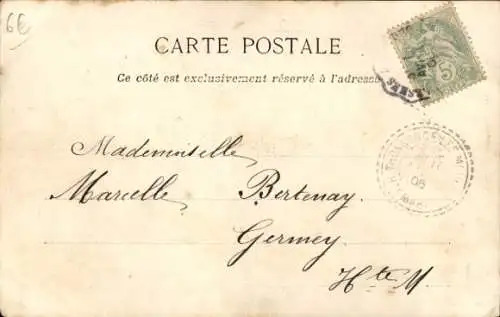 6€
CARTE POSTALE
Ce côté est exclusivement réservé à l'adresse
5
Mademoiselle
Marcelle Bertenay
Germey
Hte M.
05